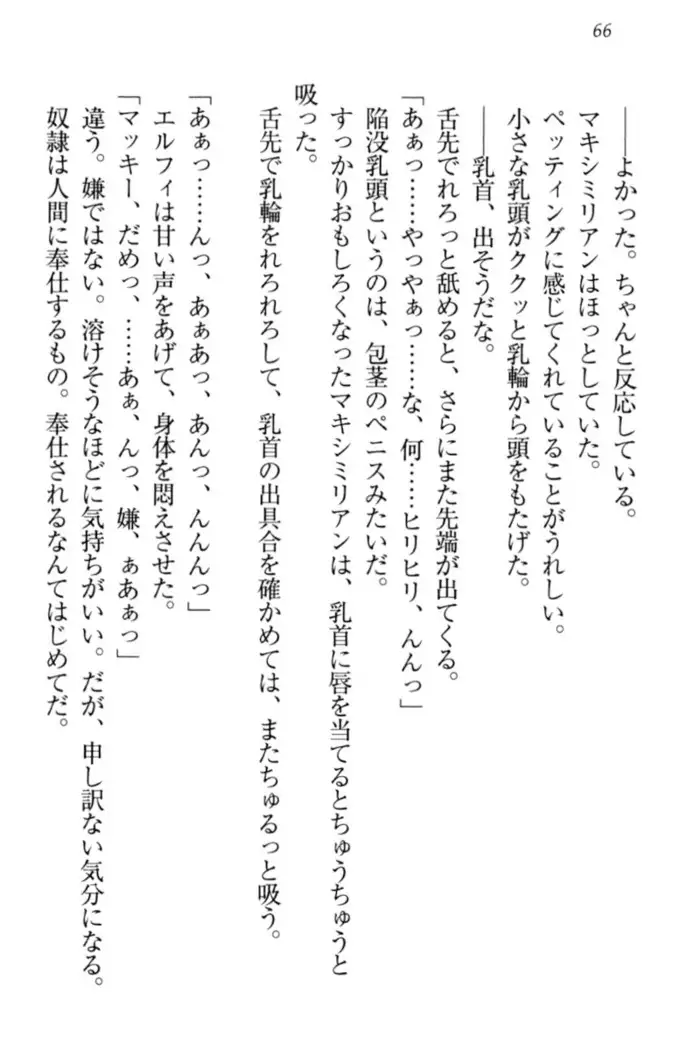 66
――よかった。ちゃんと反応している。
マキシミリアンはほっとしていた。
ペッティングに感じてくれていることがうれしい。
小さな乳頭がククッと乳輪から頭をもたげた。
――乳首、出そうだな。
舌先でれろっと舐めると、さらにまた先端が出てくる。
「あぁっ……やっやぁっ……な、何……ヒリヒリ、んんっ」
陥没乳頭というのは、包茎のペニスみたいだ。
すっかりおもしろくなったマキシミリアンは、乳首に唇を当てるとちゅうちゅうと
吸った。
舌先で乳輪をれろれろして、乳首の出具合を確かめては、またちゅるっと吸う。
「あぁっ……んっ、あぁあっ、あんっ、んんんっ」
エルフィは甘い声をあげて、身体を悶えさせた。
「マッキー、だめっ、……あぁ、んっ、嫌、ぁあぁっ」
違う。嫌ではない。溶けそうなほどに気持ちがいい。だが、申し訳ない気分になる。
奴隷は人間に奉仕するもの。奉仕されるなんてはじめてだ。